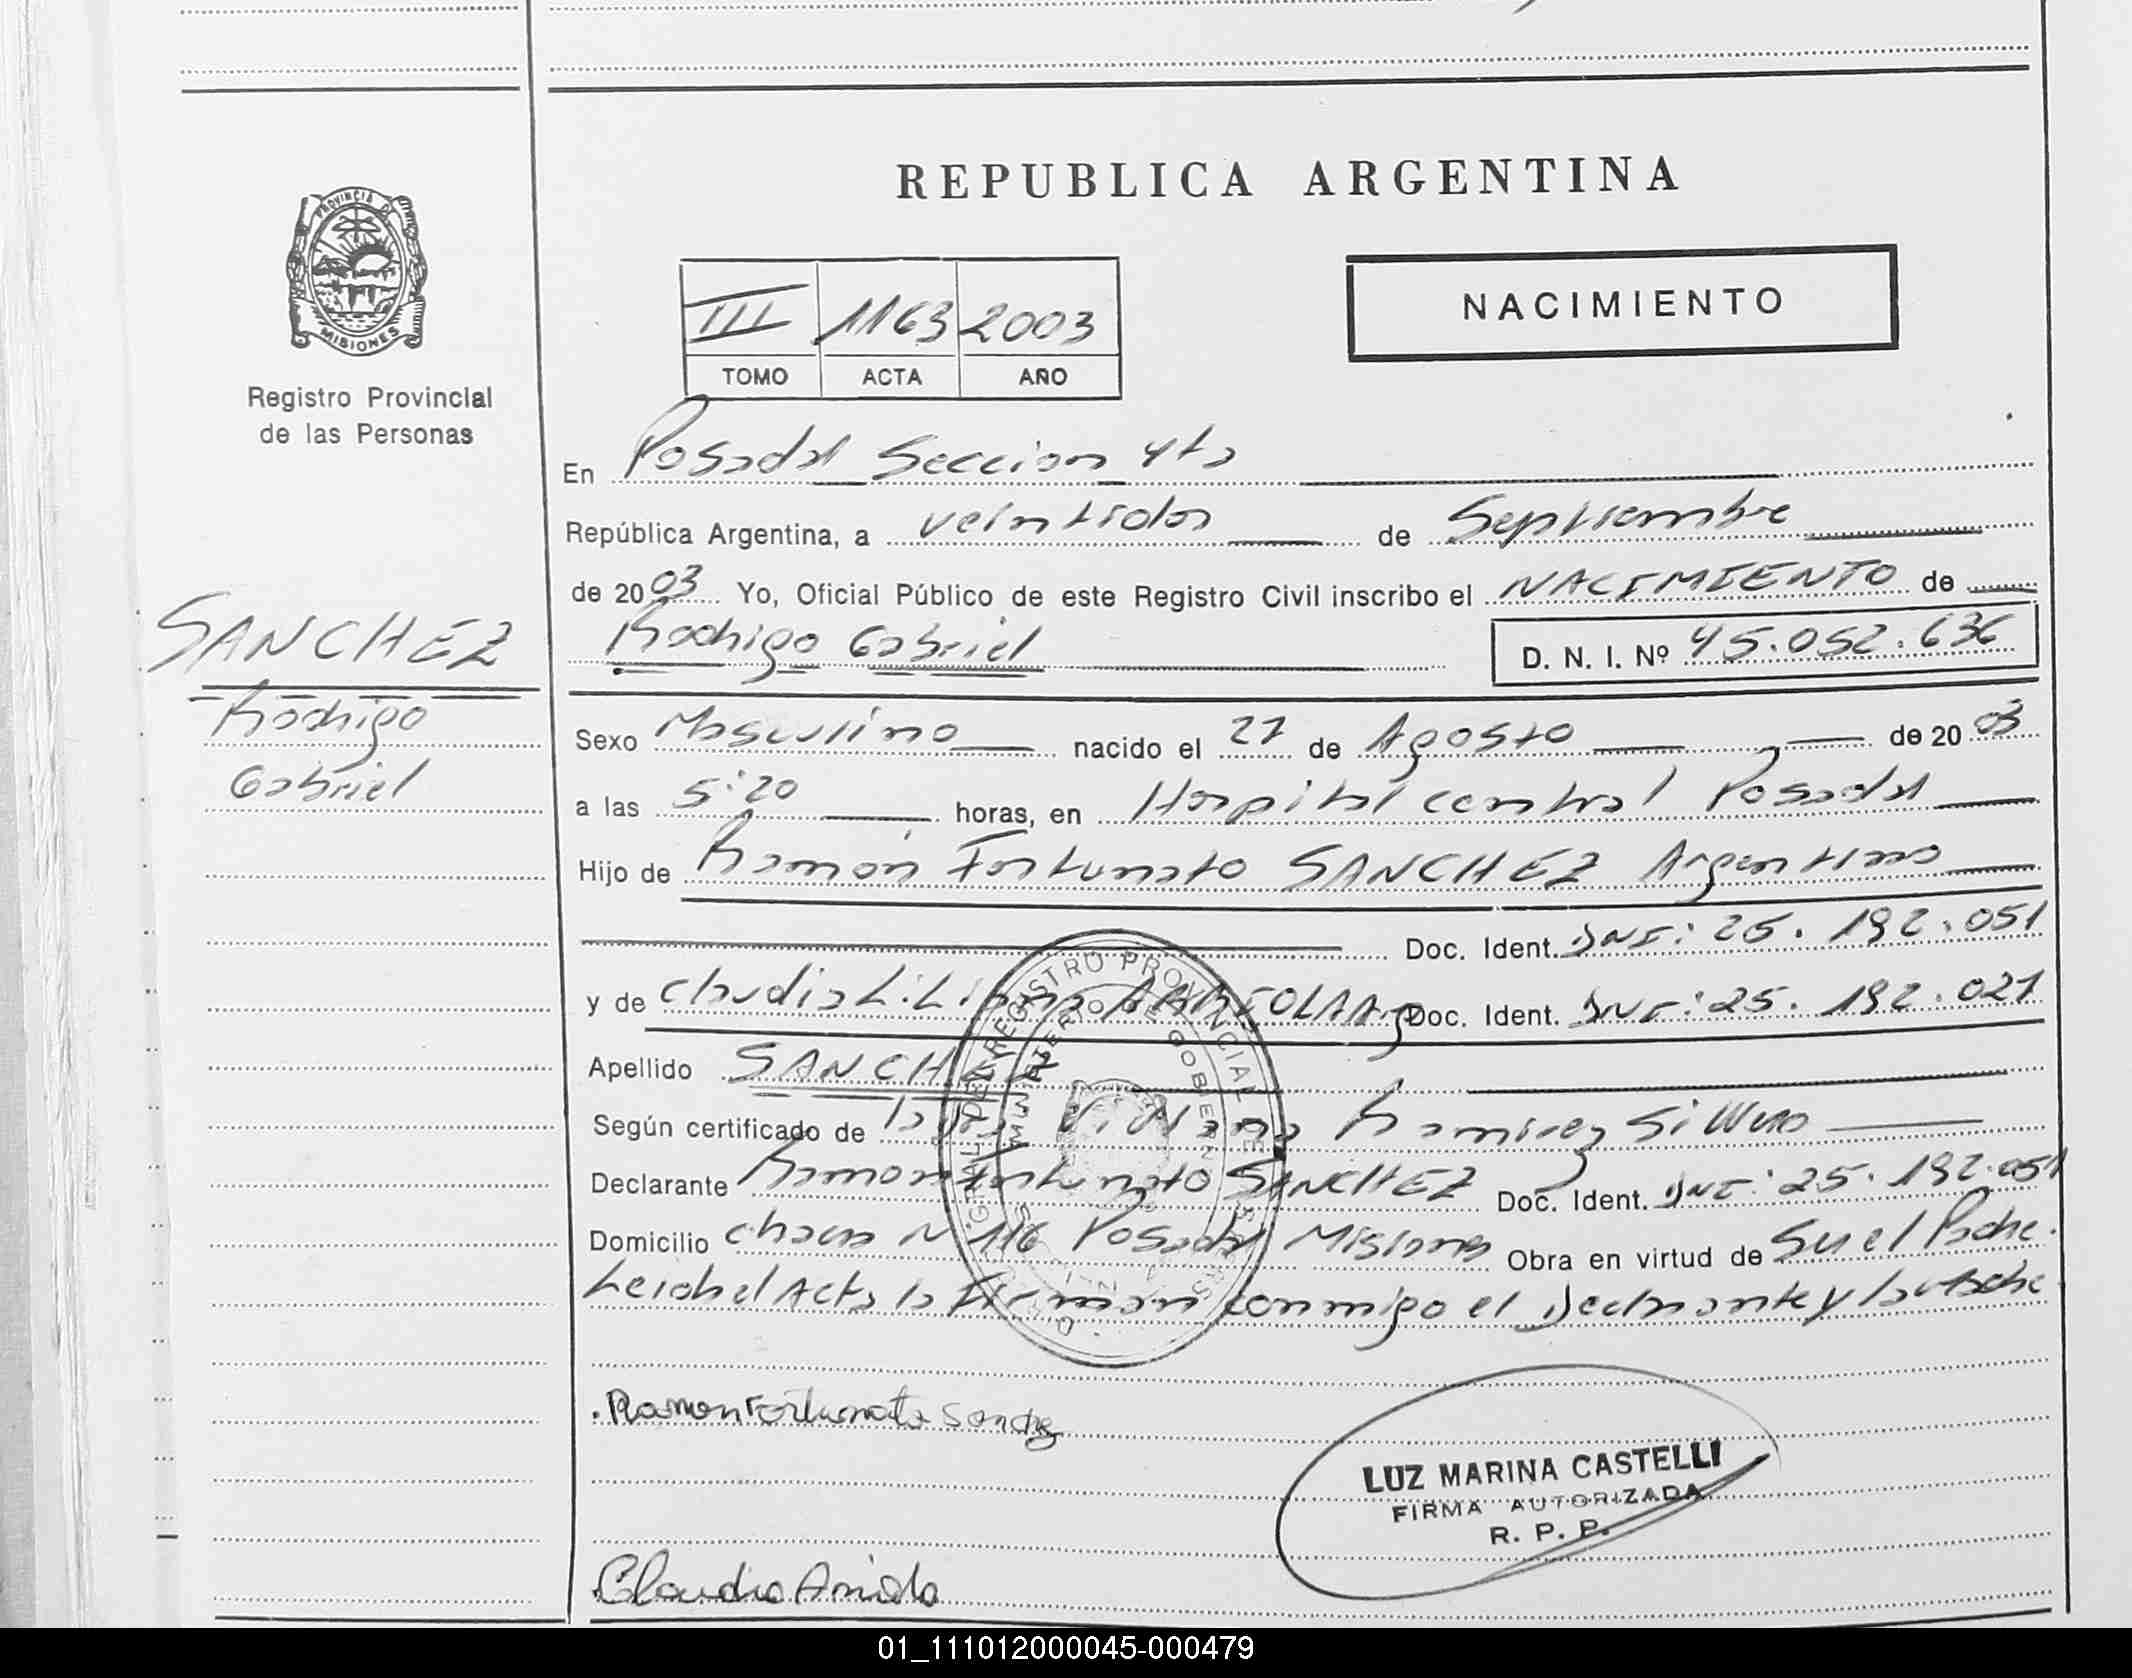 REPUBLICA ARGENTINA
PROVINCIA D
MISIONES
Registro Provincial
de las Personas
III 1163 2003
TOMO ACTA AÑO
NACIMIENTO
En Posadas Seccion 4ta
República Argentina, a veintidos de Septiembre
de 2003 Yo, Oficial Público de este Registro Civil inscribo el NACIMIENTO de
Rodrigo Gabriel D. N. I. Nº 45.052.636
SANCHEZ
Rodrigo
Gabriel
Sexo Masculino nacido el 27 de Agosto de 2003
a las 5:20 horas, en Hospital central Posadas
Hijo de Ramón Fortunato SANCHEZ Argentino
Doc. Ident. DNI: 25.192.051
y de Claudia Liliana ARRIOLA Arg Doc. Ident. DNI: 25.192.021
Apellido SANCHEZ
Según certificado de la Viviana Ramirez
Declarante Ramon Fortunato SANCHEZ Doc. Ident. DNI: 25.192.051
Domicilio chacra N 116 Posadas Misiones Obra en virtud de Su el Padre.
Leida el Acta la Firman conmigo el Declarante y la Madre
REGISTRO PROVINCIAL DE LAS
MINISTERIO DE GOBIERNO
Ramon Fortunato Sanchez
LUZ MARINA CASTELLI
FIRMA AUTORIZADA
R. P. P.
Claudia Arriola
01_111012000045-000479